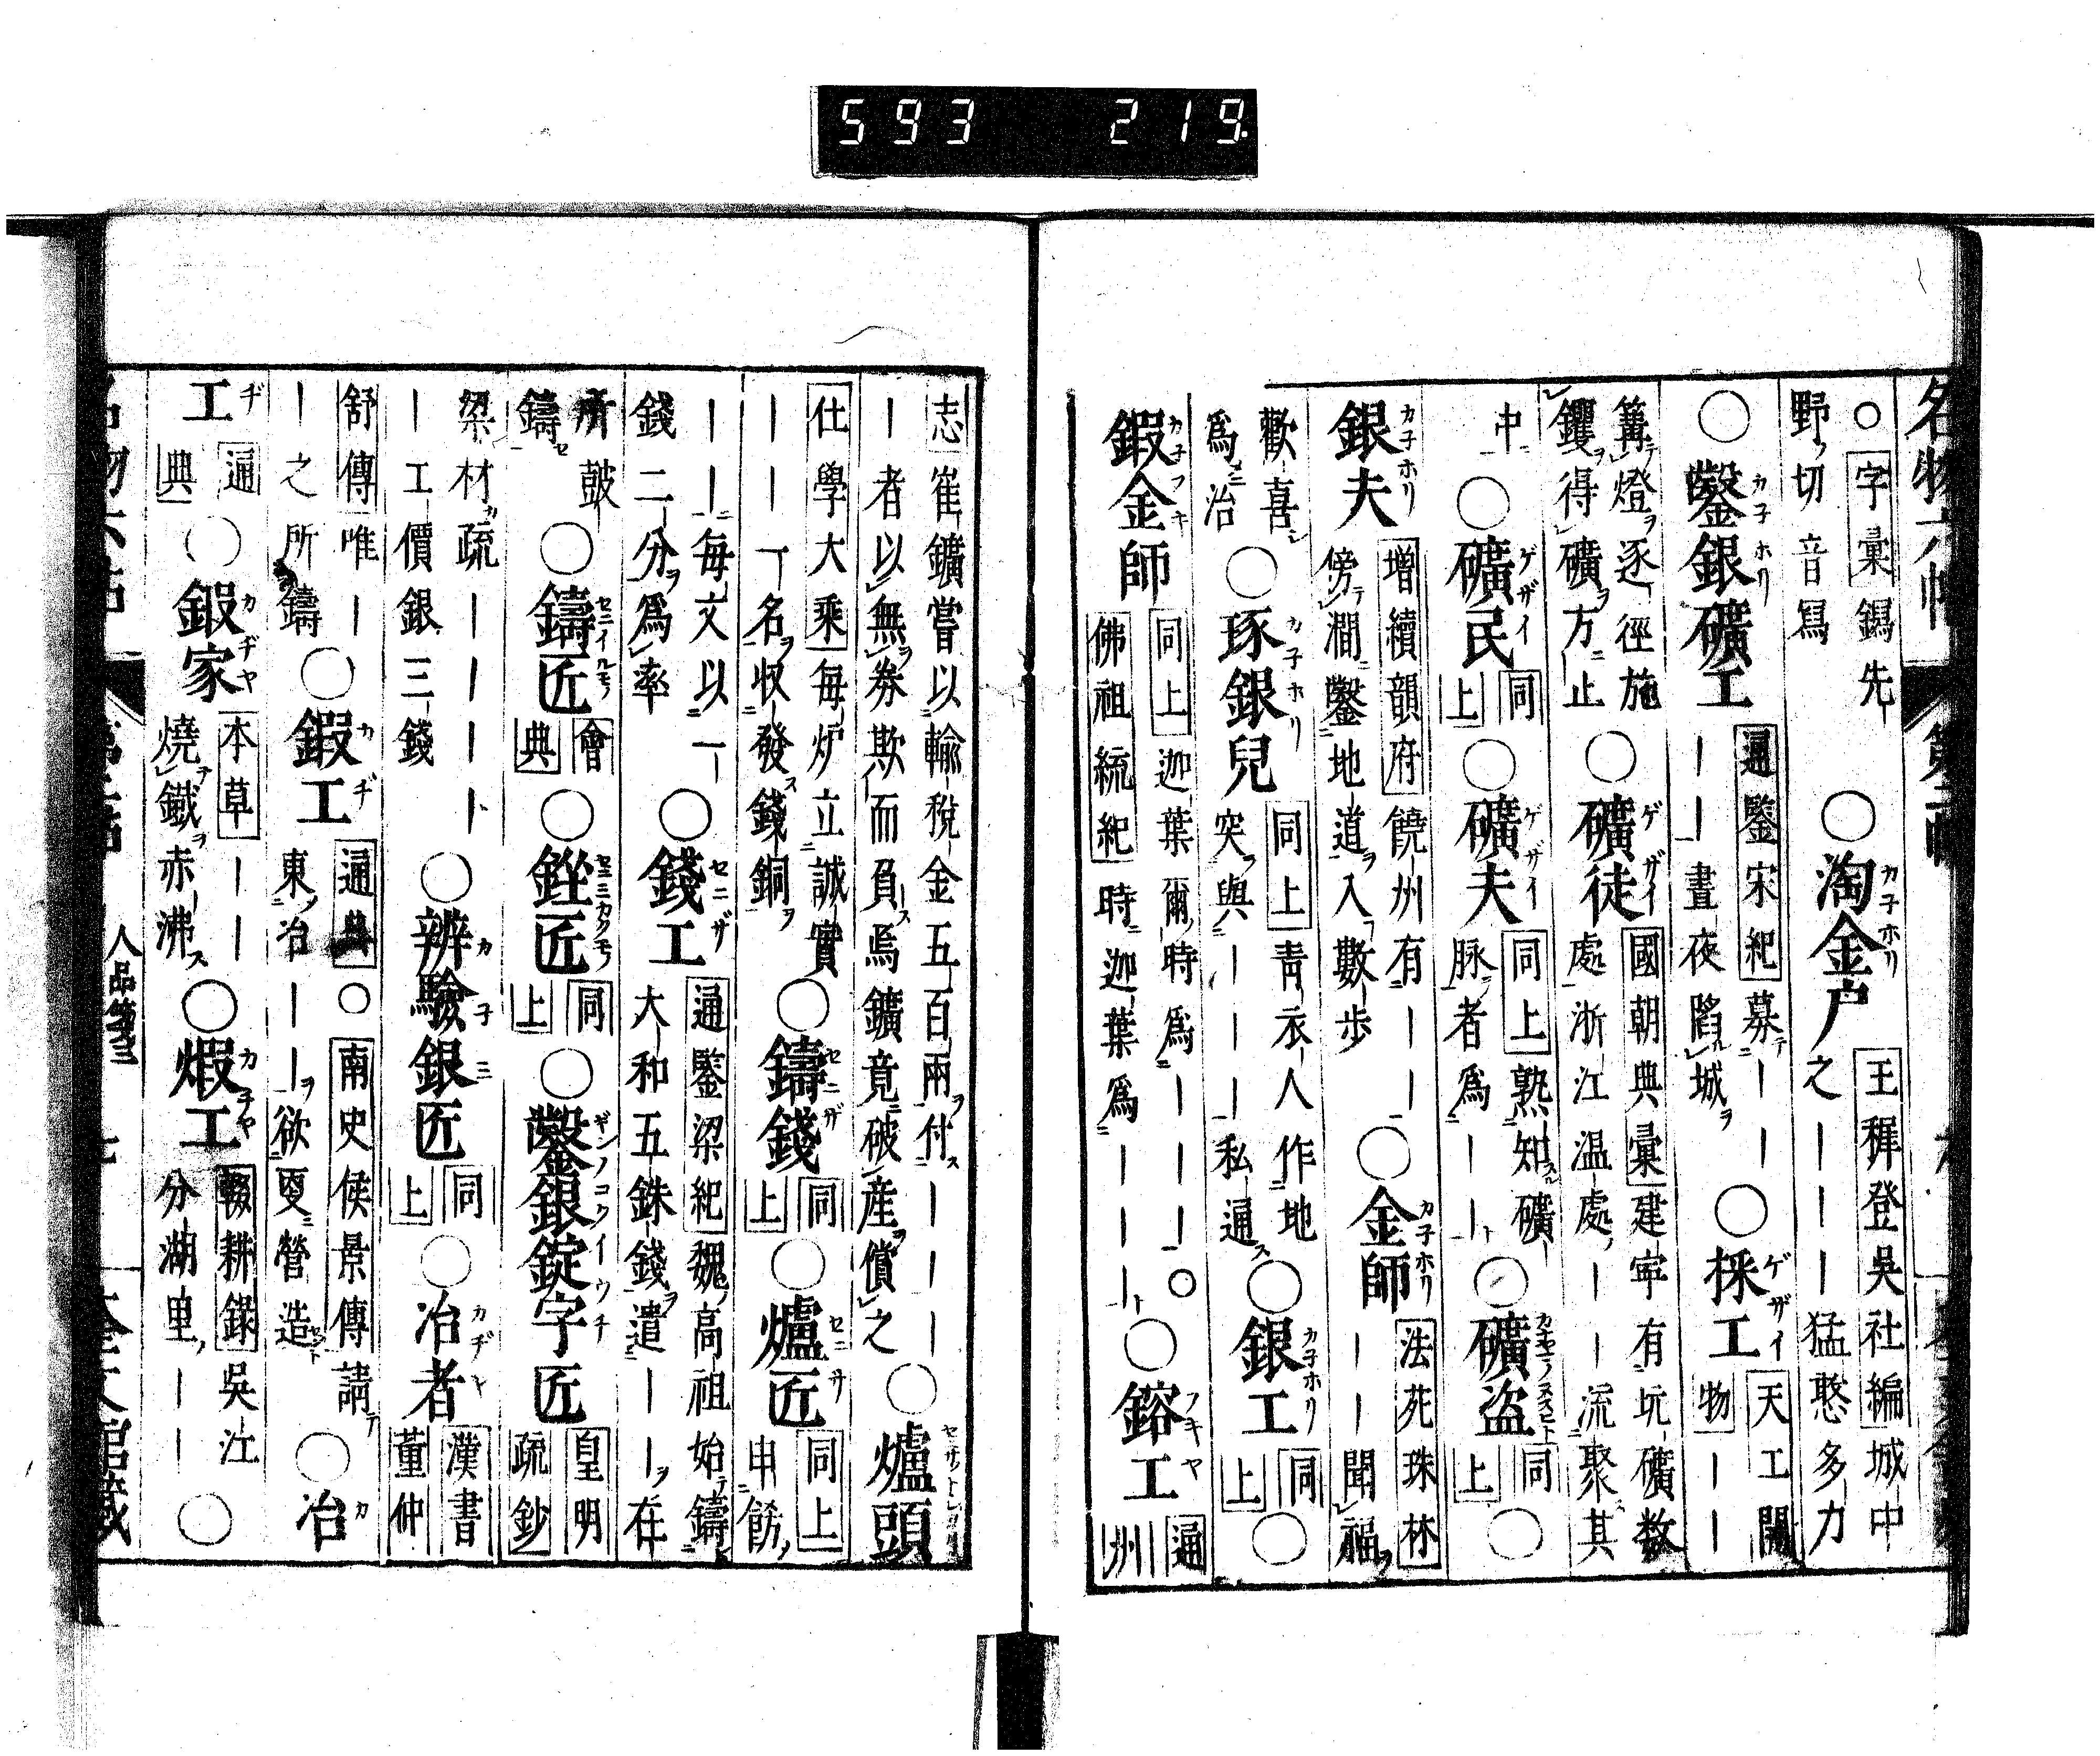 593 219
○字彙鎉先野切音寫 ○淘金戸 王穉登吳社編城中之ーーー猛憨多力
○鑿銀礦工 通鑒宋紀募ーーーー晝夜陷城 ○採工 天工開物ーー
篝燈逐徑施钁得礦方止 ○礦徒 國朝典彙建寧有坑礦数處浙江温處ーー流聚其
中 ○礦民 同上 ○礦夫 同上熟知礦脉者爲ーー ○礦盜 同上 ○
銀夫 增續韻府饒州有ーー傍澗鑿地道入數歩 ○金師 法苑珠林ーー聞福
歡喜爲治 ○琢銀兒 同上青衣人作地突與ーーー私通 ○銀工 同上 ○
鍜金師 同上迦葉爾時爲ーーー○佛祖統紀時迦葉爲ーーー ○鎔工 通
志崔鑛嘗以輸税金五百兩付ーーー者以無券欺而負焉鑛竟破産償之 ○爐頭
仕學大乘每炉立誠實ーー名収發錢銅 ○鑄錢 同上 ○爐匠 同上申飭
ーー每文以一錢二分爲率 ○錢工 通鑒梁紀魏高祖始鑄大和五銖錢遣ーー在
所鼓鑄 ○鑄匠 會典 ○銼匠 同上 ○鑿銀錠字匠 皇明疏鈔
梁材疏ーーーーー工價銀三錢 ○辨驗銀匠 同上 ○冶者 漢書董仲
舒傳唯ーー之所鑄 ○鍜工 通典○南史侯景傳請東冶ーー欲更營造 ○冶
工 通典 ○鍜家 本草ーー燒鐵赤沸 ○煆工 輟耕錄吳江分湖里ーー ○
人品箋三